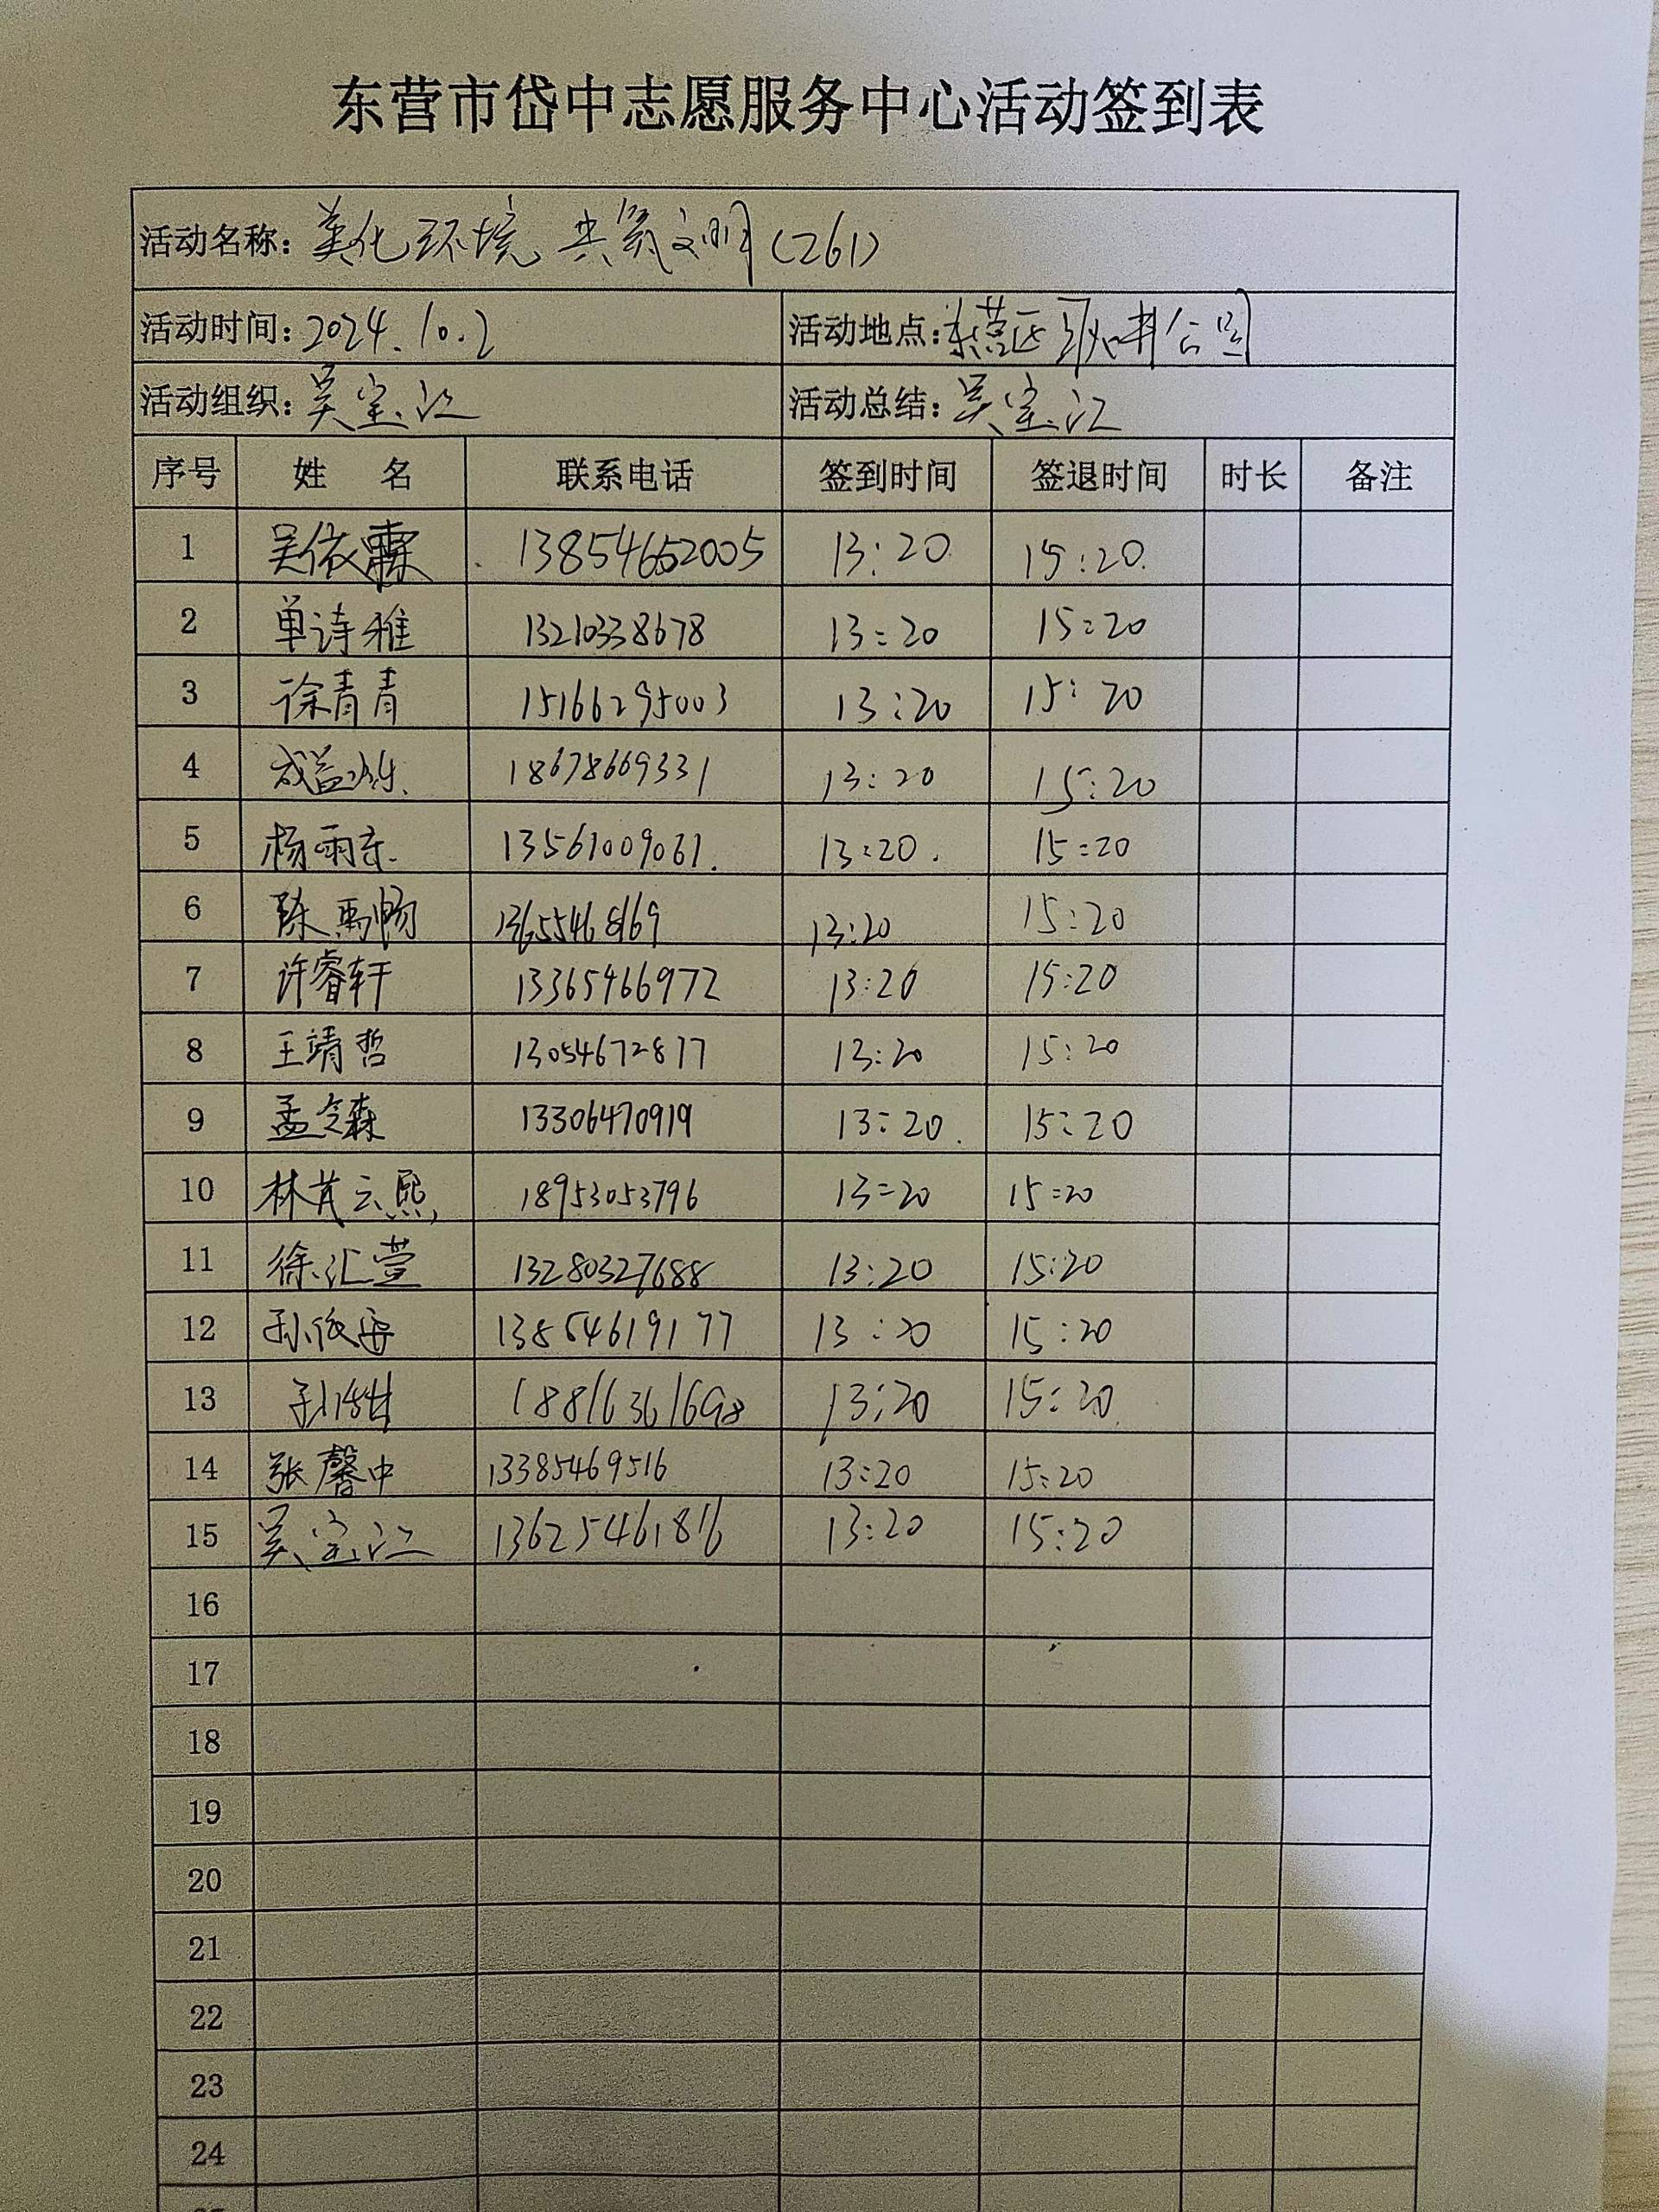 东营市岱中志愿服务中心活动签到表
活动名称：美化环境 共筑文明（261）
活动时间：2024.10.2 活动地点：东营区 公园
活动组织：吴宝江 活动总结：吴宝江
序号 姓 名 联系电话 签到时间 签退时间 时长 备注
1 吴依霖 13854652005 13:20 15:20
2 单诗雅 13210338678 13:20 15:20
3 徐青青 15166295003 13:20 15:20
4 18678669331 13:20 15:20
5 杨雨 13561009061 13:20 15:20
6 陈禹畅 13655468169 13:20 15:20
7 许睿轩 13365466972 13:20 15:20
8 王靖哲 13054672877 13:20 15:20
9 孟令森 13306470919 13:20 15:20
10 林芃云熙 18953053796 13:20 15:20
11 徐汇萱 13280327688 13:20 15:20
12 孙依 13854619177 13:20 15:20
13 18816361698 13:20 15:20
14 张馨中 13385469516 13:20 15:20
15 吴宝江 13625461816 13:20 15:20
16
17
18
19
20
21
22
23
24